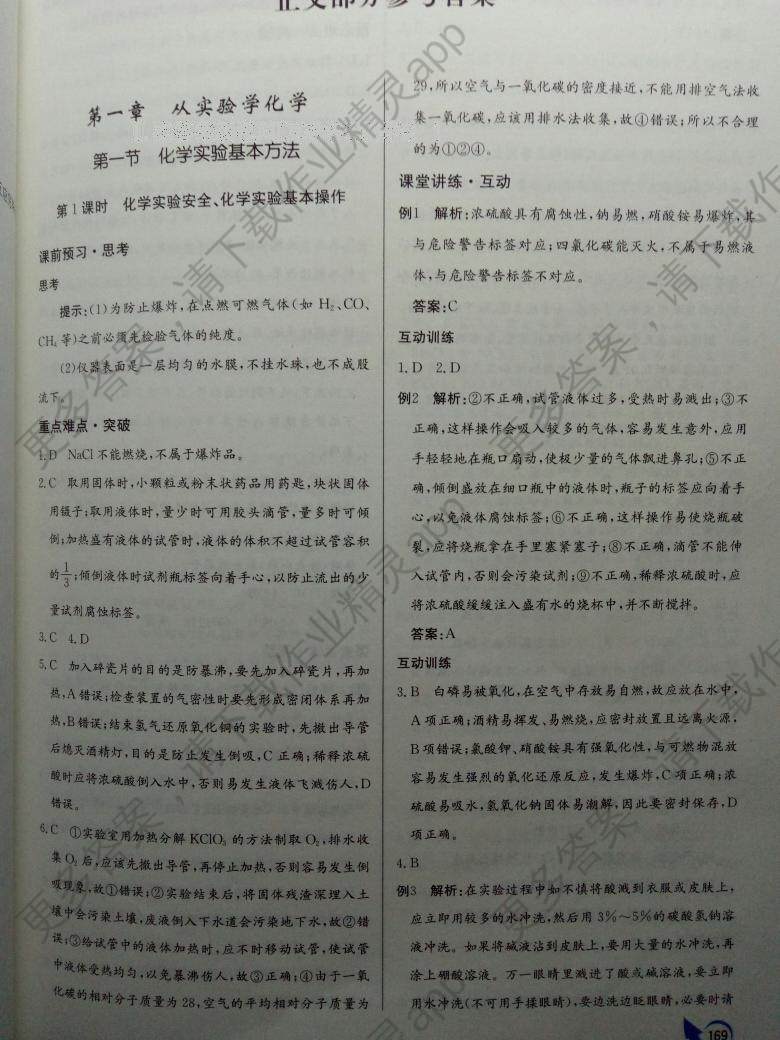 正文部分参考答案
第一章 从实验学化学
第一节 化学实验基本方法
第1课时 化学实验安全、化学实验基本操作
课前预习·思考
思考
提示:(1)为防止爆炸,在点燃可燃气体(如 H₂、CO、
CH₄等)之前必须先检验气体的纯度。
(2)仪器表面是一层均匀的水膜,不挂水珠,也不成股
流下。
重点难点·突破
1.D NaCl不能燃烧,不属于爆炸品。
2.C 取用固体时,小颗粒或粉末状药品用药匙,块状固体
用镊子;取用液体时,量少时可用胶头滴管,量多时可倾
倒;加热盛有液体的试管时,液体的体积不超过试管容积
的1/3;倾倒液体时试剂瓶标签向着手心,以防止流出的少
量试剂腐蚀标签。
3.C 4.D
5.C 加入碎瓷片的目的是防暴沸,要先加入碎瓷片,再加
热,A错误;检查装置的气密性时要先形成密闭体系再加
热,B错误;结束氢气还原氧化铜的实验时,先撤出导管
后熄灭酒精灯,目的是防止发生倒吸,C正确;稀释浓硫
酸时应将浓硫酸倒入水中,否则易发生液体飞溅伤人,D
错误。
6.C ①实验室用加热分解 KClO₃ 的方法制取 O₂,排水收
集 O₂ 后,应该先撤出导管,再停止加热,否则容易发生倒
吸现象,故①错误;②实验结束后,将固体残渣深埋入土
壤中会污染土壤,废液倒入下水道会污染地下水,故②错
误;③给试管中的液体加热时,应不时移动试管,使试管
中液体受热均匀,以免暴沸伤人,故③正确;④由于一氧
化碳的相对分子质量为28,空气的平均相对分子质量为
29,所以空气与一氧化碳的密度接近,不能用排空气法收
集一氧化碳,应该用排水法收集,故④错误;所以不合理
的为①②④。
课堂讲练·互动
例1 解析:浓硫酸具有腐蚀性,钠易燃,硝酸铵易爆炸,其
与危险警告标签对应;四氯化碳能灭火,不属于易燃液
体,与危险警告标签不对应。
答案:C
互动训练
1.D 2.D
例2 解析:②不正确,试管液体过多,受热时易溅出;③不
正确,这样操作会吸入较多的气体,容易发生意外,应用
手轻轻地在瓶口扇动,使极少量的气体飘进鼻孔;⑤不正
确,倾倒盛放在细口瓶中的液体时,瓶子的标签应向着手
心,以免液体腐蚀标签;⑥不正确,这样操作易使烧瓶破
裂,应将烧瓶拿在手里塞紧塞子;⑧不正确,滴管不能伸
入试管内,否则会污染试剂;⑨不正确,稀释浓硫酸时,应
将浓硫酸缓缓注入盛有水的烧杯中,并不断搅拌。
答案:A
互动训练
3.B 白磷易被氧化,在空气中存放易自燃,故应放在水中,
A项正确;酒精易挥发、易燃烧,应密封放置且远离火源,
B项错误;氯酸钾、硝酸铵具有强氧化性,与可燃物混放
容易发生强烈的氧化还原反应,发生爆炸,C项正确;浓
硫酸易吸水,氢氧化钠固体易潮解,因此要密封保存,D
项正确。
4.B
例3 解析:在实验过程中如不慎将酸溅到衣服或皮肤上,
应立即用较多的水冲洗,然后用3%~5%的碳酸氢钠溶
液冲洗。如果将碱液沾到皮肤上,要用大量的水冲洗,再
涂上硼酸溶液。万一眼睛里溅进了酸或碱溶液,要立即
用水冲洗(不可用手揉眼睛),要边洗边眨眼睛,必要时请
169
更多答案,请下载作业精灵app
更多答案,请下载作业精灵app
更多答案,请下载作
更多答案,请下载作业精灵app
更多答案,请下载作